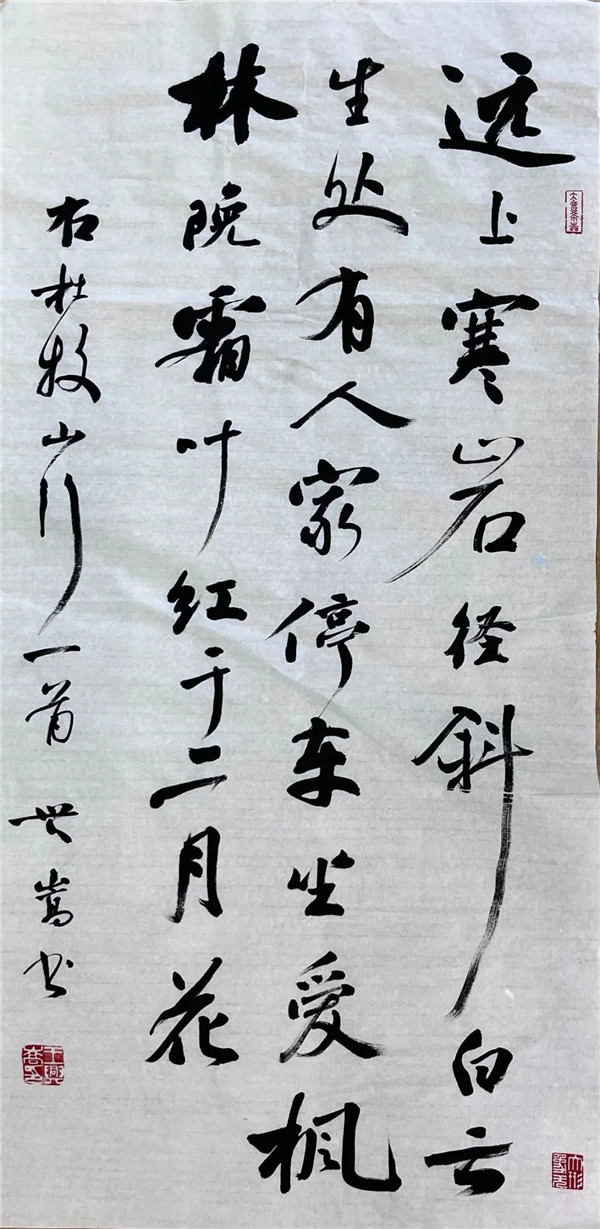 远上寒岩径斜白云
生处有人家停车坐爱枫
林晚霜叶红于二月花
右杜牧山行一首 世嵩书